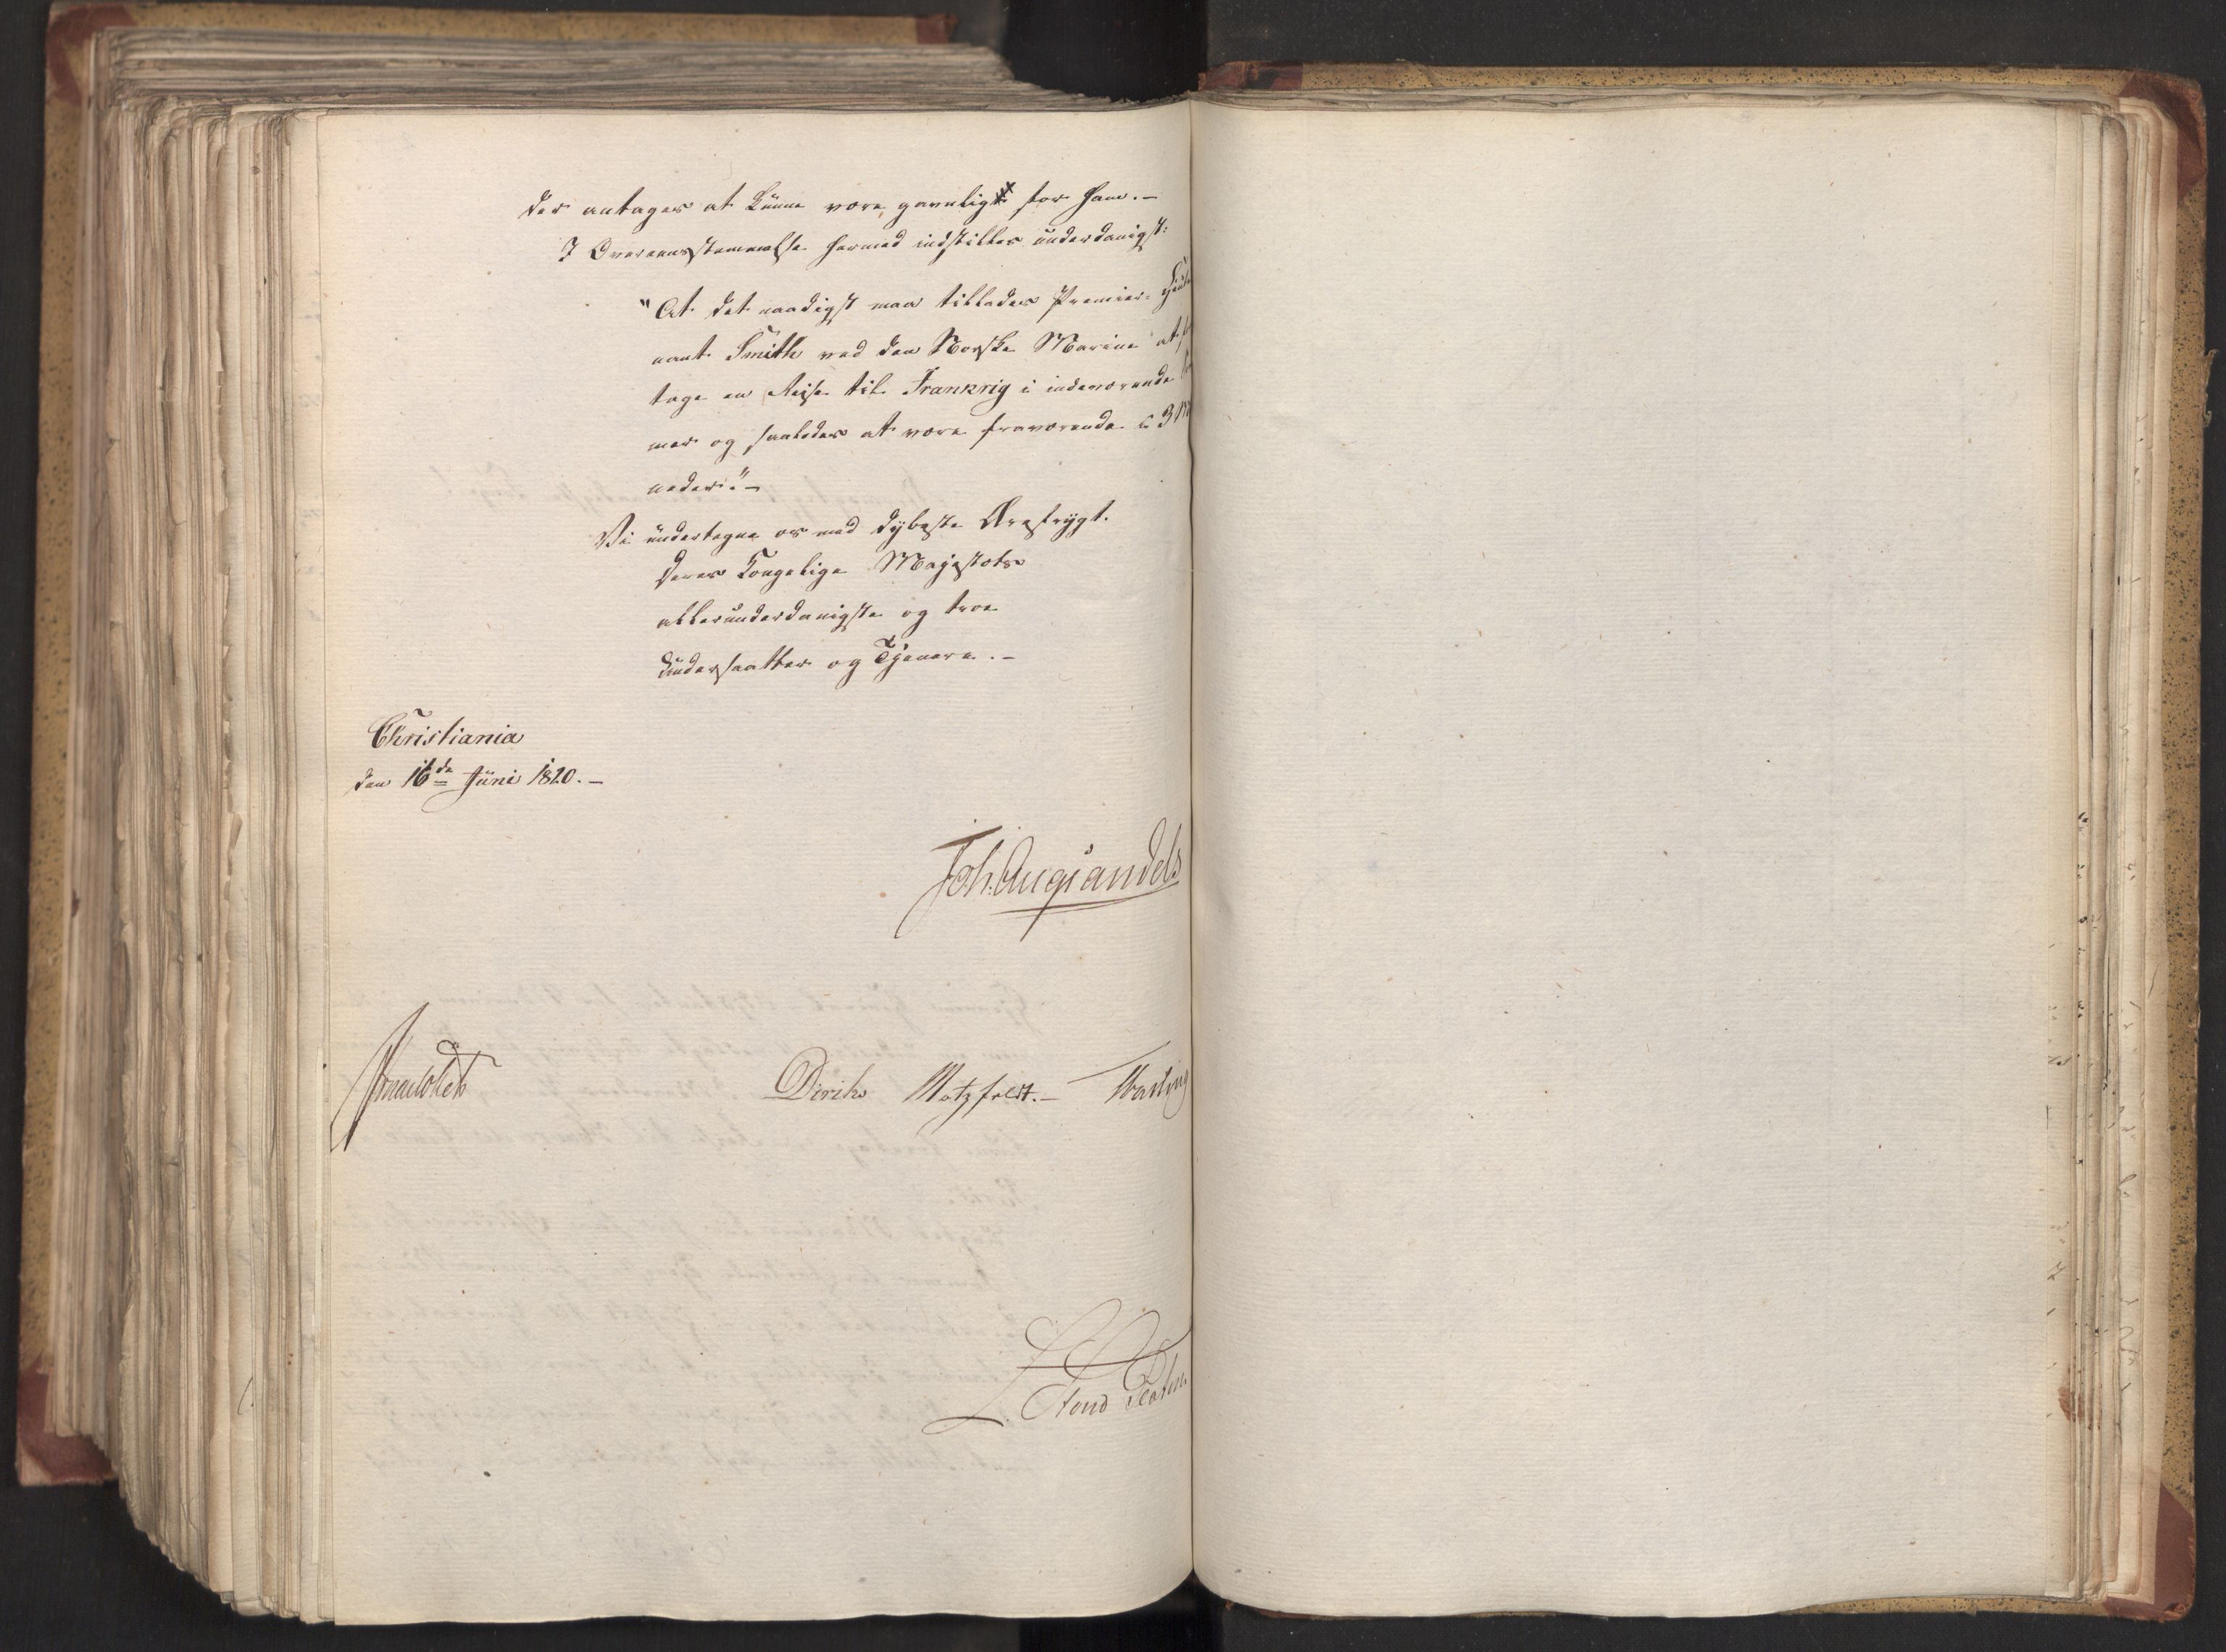 der antages at kunne være gavnligt for ham.-
I Overeensstemmelse hermed indstilles underdanigst:
"At det naadigst maa tillades Premier-Lieute
nant Smith ved den Norske Marine at
tage en Reise til Frankrig i indeværende
mer og saaledes at være fraværende i 3
neder."-
Vi undertegne os med dybeste Ærefrygt.
Deres Kongelige Majestæts
allerunderdanigste og troe
Undersaatter og Tjenere.-
Christiania
den 16de Juni 1820.-
Joh. Aug Sandels
Diriks Motzfeldt.-